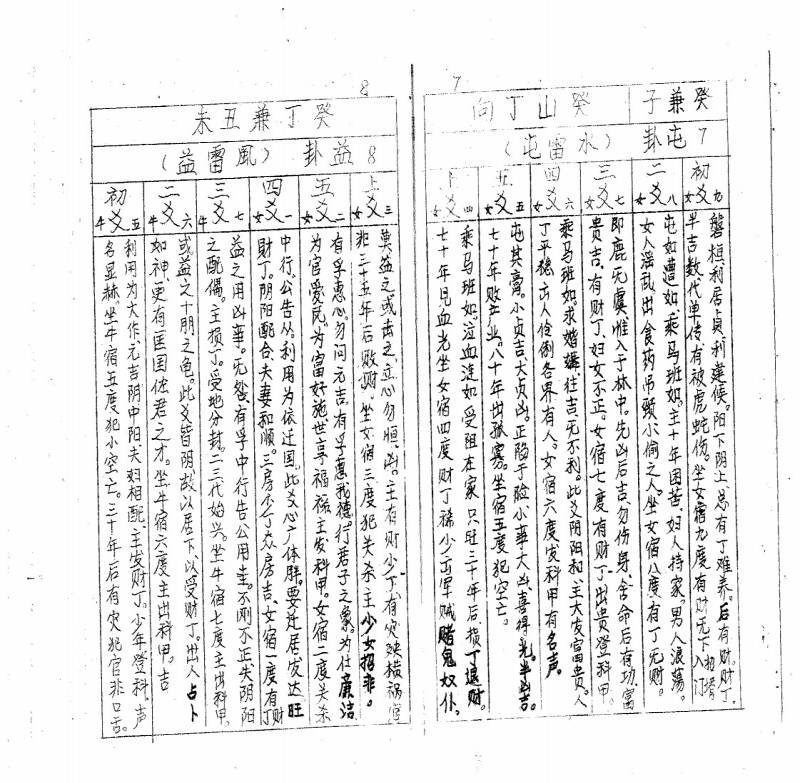 7
癸兼子
癸山丁向
7屯卦
(水雷屯)
初九爻女
磐桓利居貞利建侯。阳下阴上,总有丁难养。后有财,财丁
半吉数代单传,有被虎蛇伤。坐女宿九度有财无下
二八爻女
屯如遭如,乘马班如,主十年困苦,妇人持家,男人浪荡。
女人淫乱出食药吊颈小偷之人。坐女宿八度有丁无财。
三七爻女
即鹿无虞惟入于林中。先凶后吉,勿伤身,舍命后有功,富
贵吉,有财丁,妇女不正。女宿七度有财丁出贵登科甲。
四六爻女
乘马班如,求婚媾,往吉,无不利。此爻阴阳和,主大发富贵。人
丁平稳,出人伶俐各界有人。女宿六度发科甲有名声。
五五爻女
屯其膏。小贞吉大贞凶。正陷于险小葬大凶,喜得光。半凶吉。
七十年败产业。八十年出孤寡。坐女宿五度犯空亡。
上四爻女
乘马班如,泣血涟如受阻在家只旺三十年后,损丁退财。
七十年见血光坐女宿四度财丁稀少出军贼赌鬼奴仆,
8
癸丁兼丑未
8益卦
(風雷益)
上三爻女
莫益之或击之,立心勿恒,凶。主有财少丁有灾殃横祸官
非三十五年后败财,坐女宿三度犯关杀主少女招非。
五二爻女
有孚惠心,勿问元吉,有孚惠我德。行君子之象。为仕廉洁
为官爱民,为富好施世享福禄,主发科甲。女宿二度关杀
四一爻女
中行。公告从,利用为依迁国,此爻心广体胖。要迁居发达旺
财丁。阴阳配合,夫妻和顺。三房少丁众房吉,女宿一度有丁财
三七爻牛
益之用凶事。无咎,有孚中行告公用圭。不刚不正,失阴阳
之配偶。主损丁。受地分封。二三代始兴。坐牛宿七度主出科甲,
二六爻牛
或益之十朋之龟。此爻皆阴,故以居下,以受财丁。出人占卜
如神,更有匡国佐君之才。坐牛宿六度主出科甲。吉
初五爻牛
利用为大作,元吉阴中阳夫妇相配,主发财丁。少年登科,声
名显赫,坐牛宿五度犯小空亡。三十年后有灾犯官非口舌。